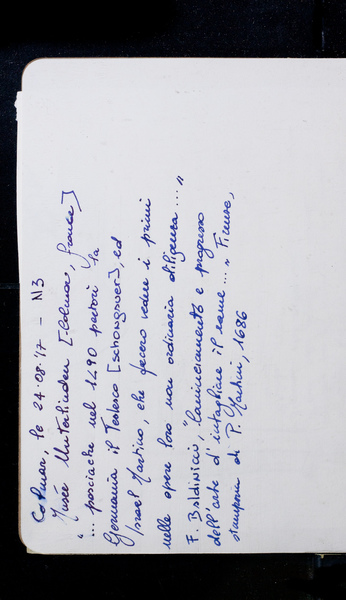 Colmar, le 24.08.'17 - N3
Musée Unterlinden [Colmar, France]
"... posciache nel 1490 partorì la
Germania il Tedesco [Schongauer], ed
Martino, che fecero vedere i primi
nelle opere loro non ordinaria diligenza ..."
F. Baldinucci, "Cominciamento e progresso
dell'arte d'intagliare il rame ..." Firenze,
stamperia di P. Matini, 1686